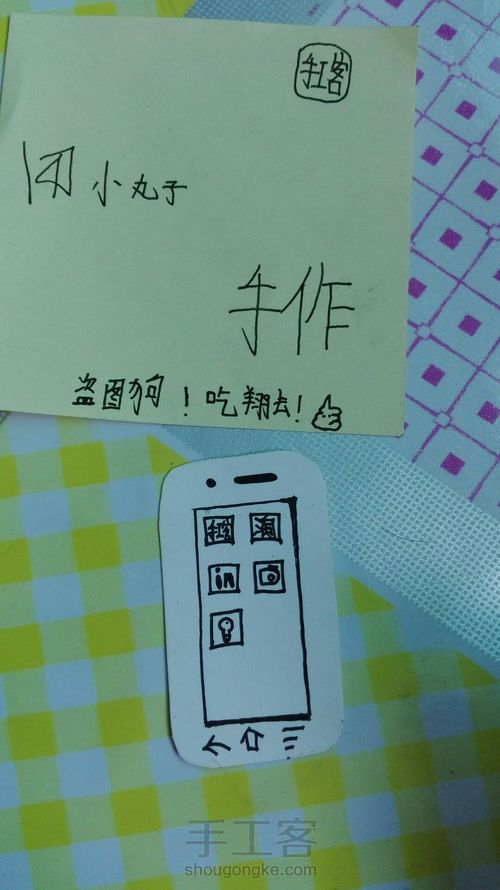 手工客
团小丸子
手作
盗图狗!吃翔去!
手工客
淘
in
手工客
shougongke.com